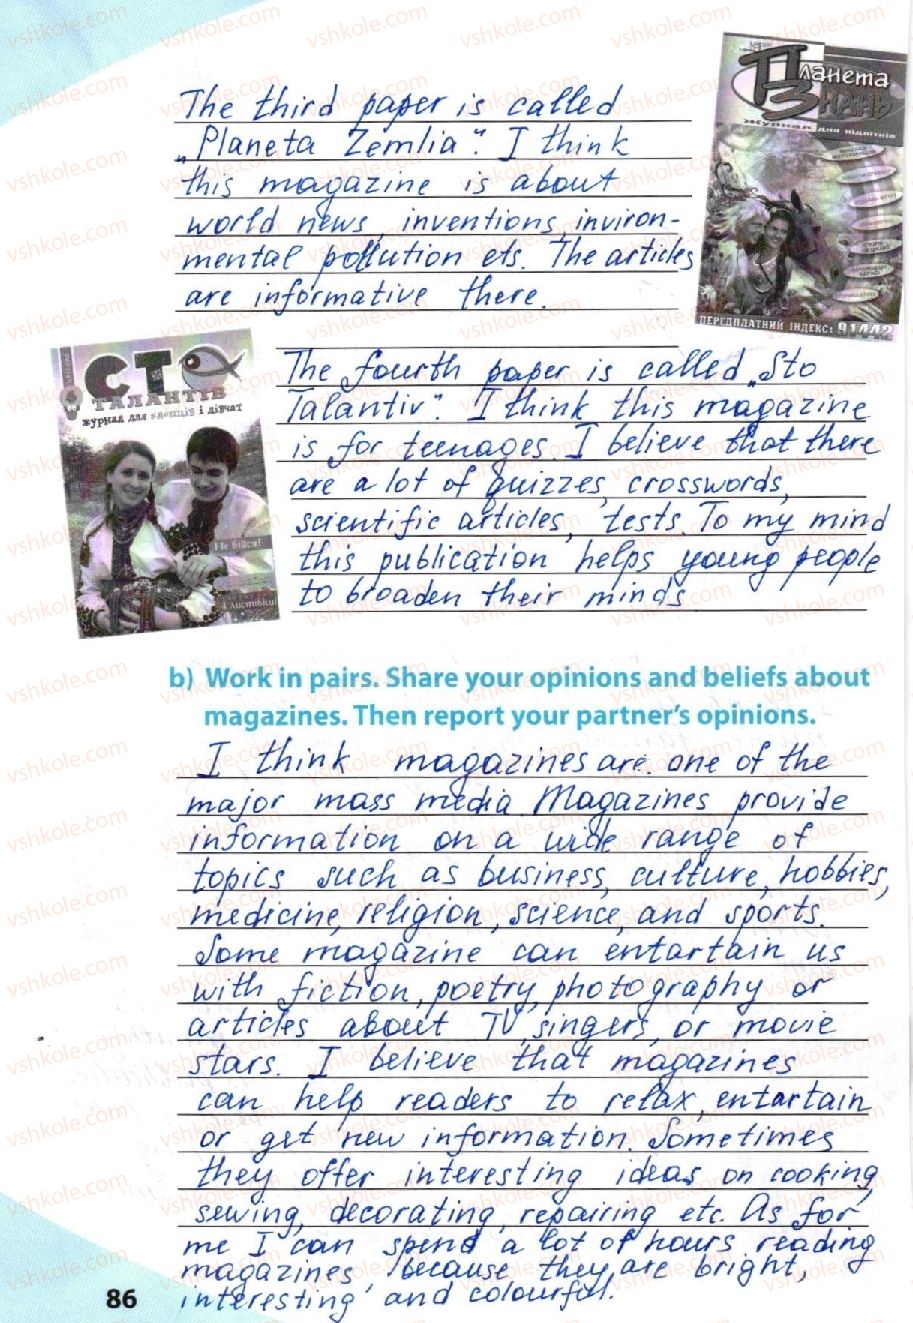 The third paper is called
„Planeta Zemlia". I think
this magazine is about
world news, inventions, inviron-
mental pollution ets. The articles
are informative there.
Планета
Знань
журнал для підлітків
ПЕРЕДПЛАТНИЙ ІНДЕКС: 91442
СТО
ТАЛАНТІВ
журнал для хлопців і дівчат
Не бійся!
The fourth paper is called „Sto
Talantiv". I think this magazine
is for teenages. I believe that there
are a lot of quizzes, crosswords,
scientific articles, tests. To my mind
this publication helps young people
to broaden their minds
b) Work in pairs. Share your opinions and beliefs about
magazines. Then report your partner's opinions.
I think magazines are one of the
major mass media. Magazines provide
information on a wide range of
topics such as business, culture, hobbies,
medicine, religion, science, and sports.
Some magazine can entartain us
with fiction, poetry, photography or
articles about TV, singers, or movie
stars. I believe that magazines
can help readers to relax, entartain
or get new information. Sometimes
they offer interesting ideas on cooking,
sewing, decorating, repairing etc. As for
me I can spend a lot of hours reading
magazines because they are bright,
interesting and colourful.
86
vshkole.com